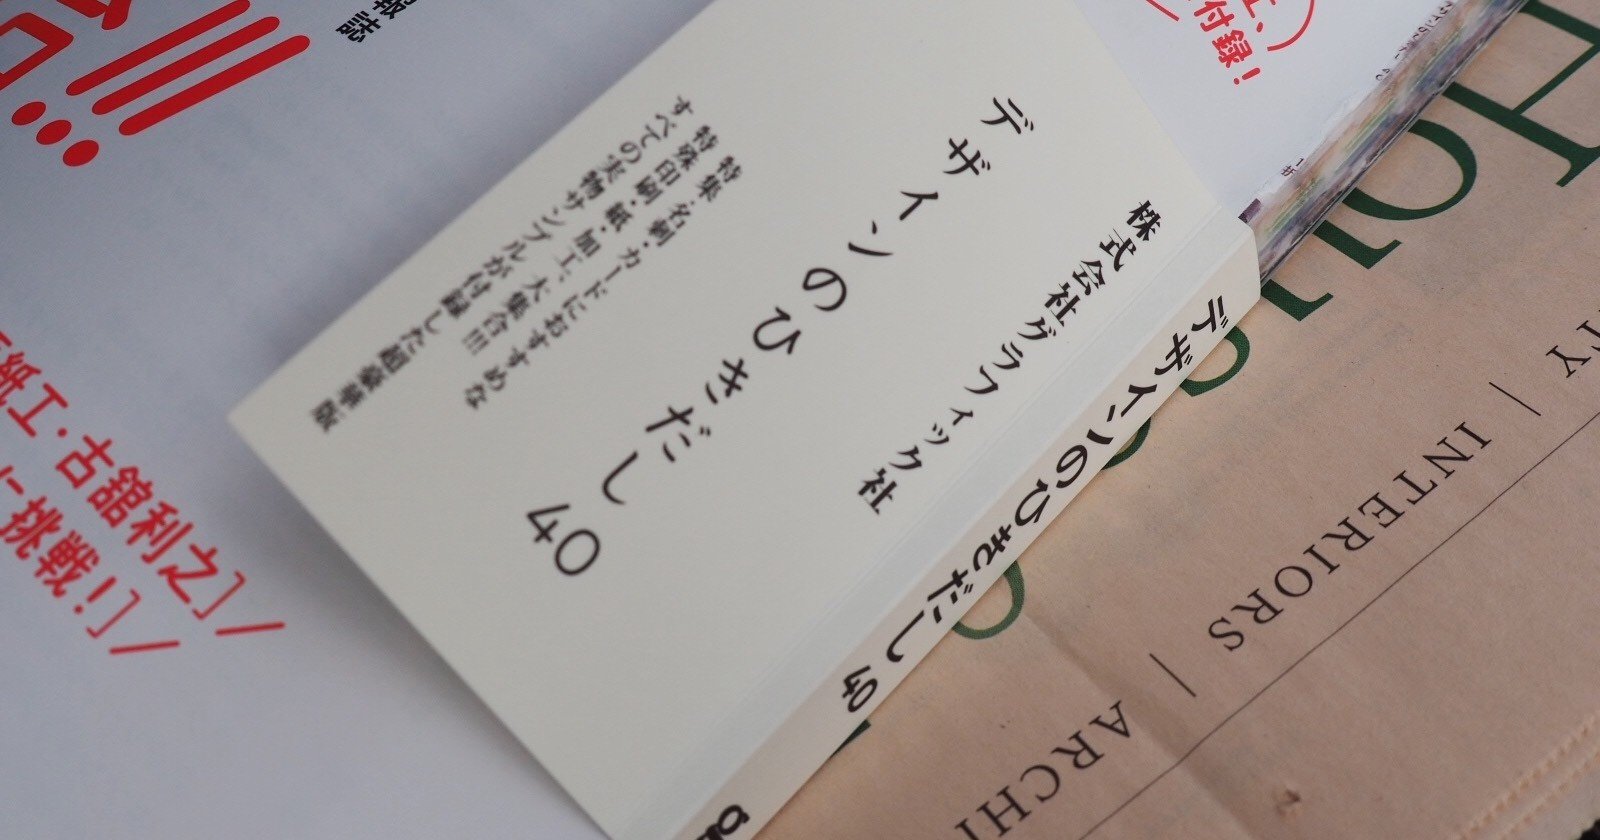 報誌
付録!
株式会社グラフィック社
デザインのひきだし40
特集・名刺・カードにおすすめな
特殊印刷・紙・加工、大集合!!!
すべての実物サンプルが付録した超豪華版
デザインのひきだし 40
紙工・古舘利之]/
挑戦!]/
TY | INTERIORS | ARCHI